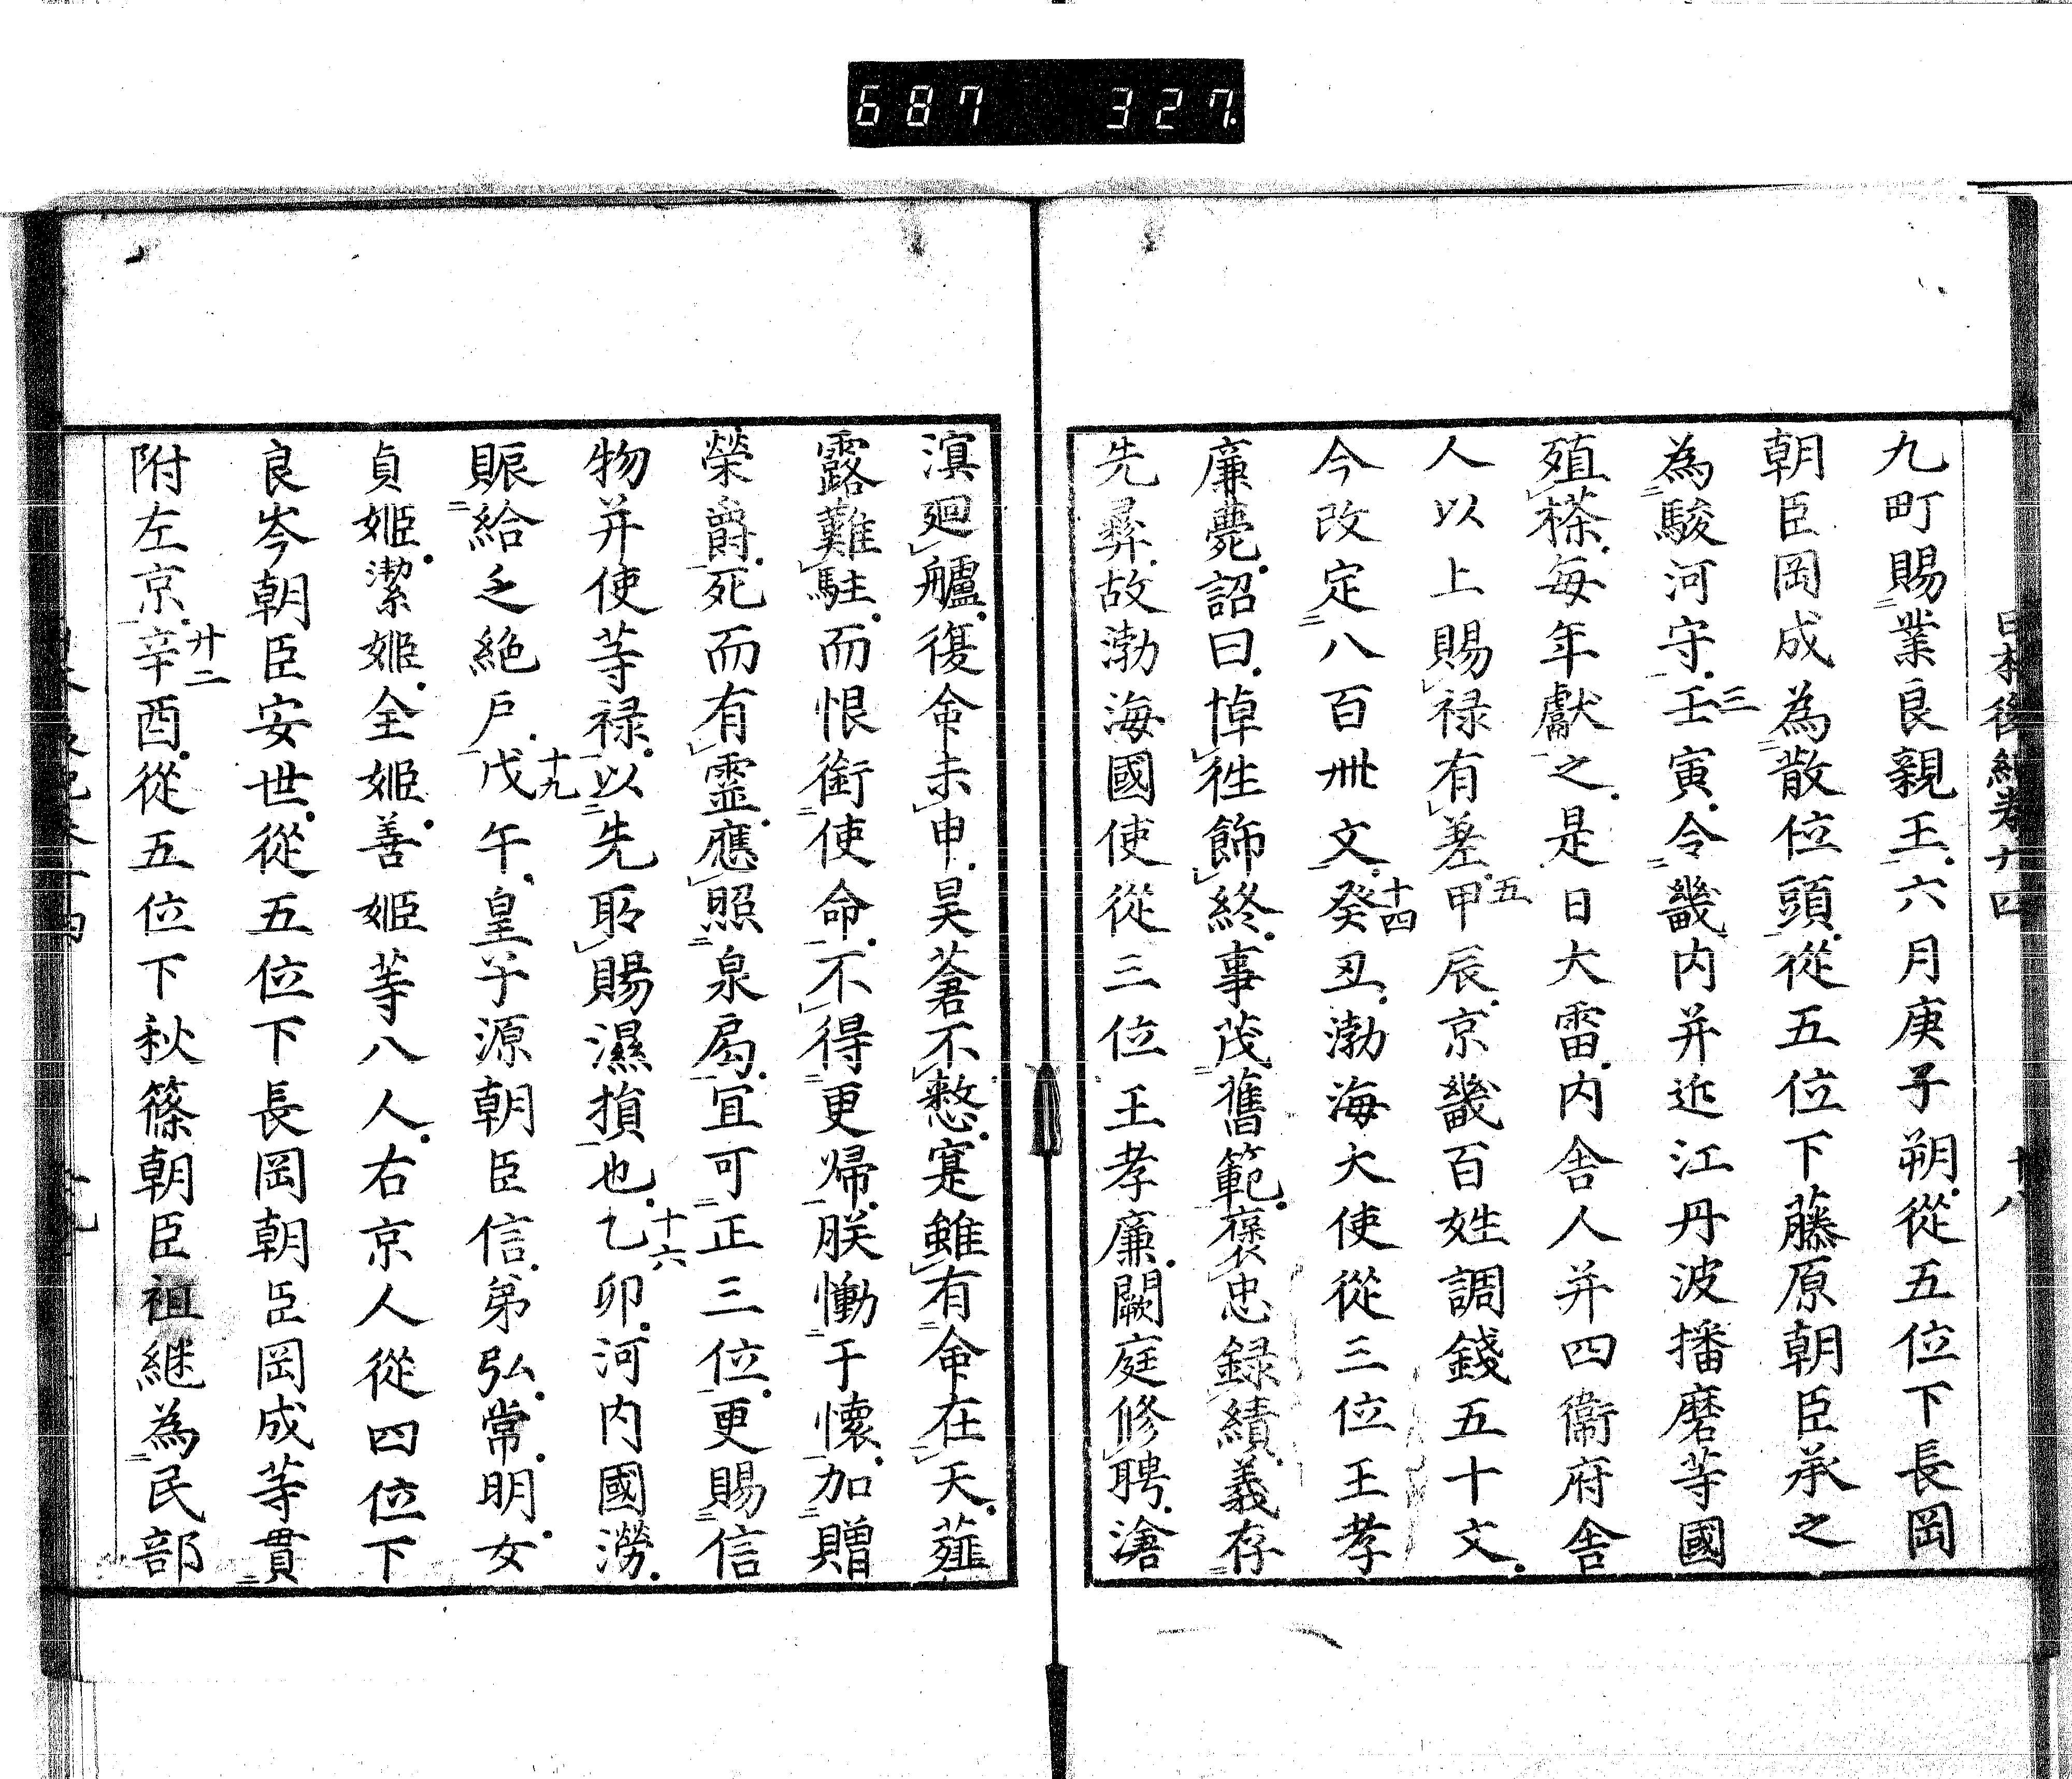 687 327
日本後紀卷十四 十八
九町賜業良親王六月庚子朔從五位下長岡
朝臣岡成為散位頭從五位下藤原朝臣承之
為駿河守壬寅令畿内并近江丹波播磨等國
三
殖㮈每年獻之是日大雷内舎人并四衞府舎
人以上賜禄有差甲辰京畿百姓調錢五十文
五
今改定八百卌文癸丑渤海大使從三位王孝
十四
廉薨詔曰悼徃飾終事茂舊範褒忠録績義存
先彝故渤海國使從三位王孝廉闕庭修聘滄
溟廻艫復命未申昊蒼不憗寔雖有命在天薤
露難駐而恨銜使命不得更歸朕慟于懷加贈
榮爵死而有靈應照泉扃宜可正三位更賜信
物并使等禄以先所賜濕損也乙卯河内國澇
十六
賑給乏絶戸戊午皇子源朝臣信弟弘常明女
十九
貞姫潔姫全姫善姫等八人右京人從四位下
良岑朝臣安世從五位下長岡朝臣岡成等貫
附左京辛酉從五位下秋篠朝臣祖継為民部
廿二